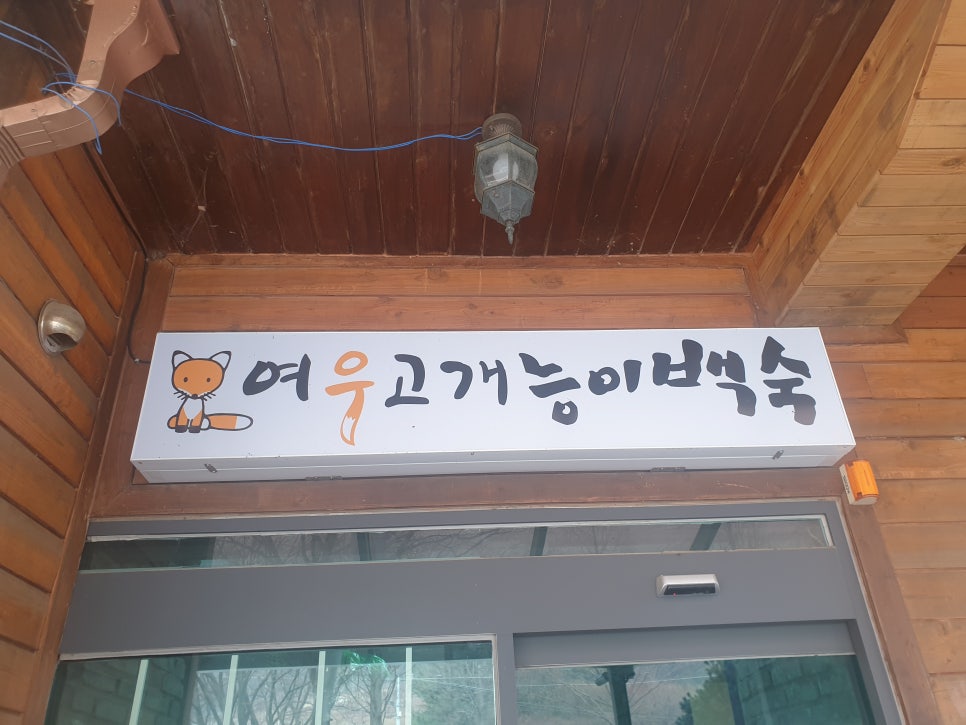 여우고개능이백숙